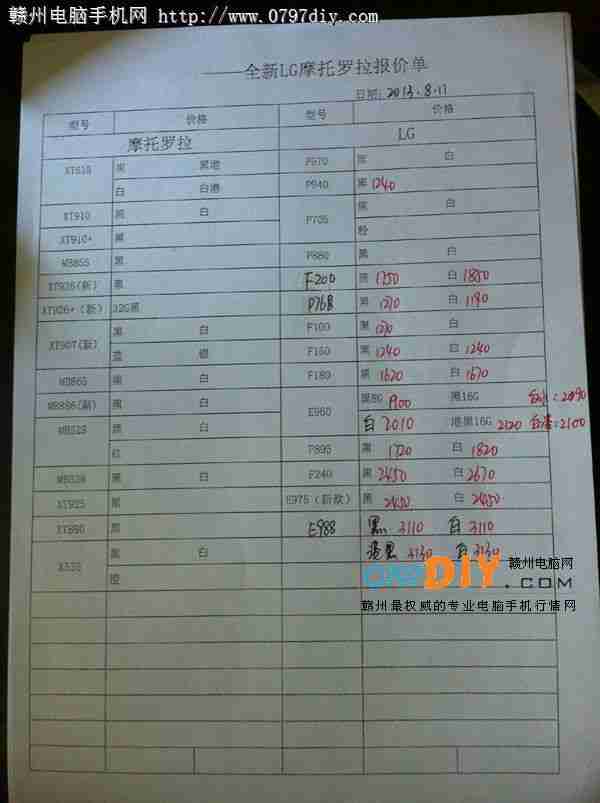 赣州电脑手机网 http://www.0797diy.com
——全新LG摩托罗拉报价单
日期: 2013.8.11
型号 价格 型号 价格
摩托罗拉 LG
黑 黑港 P970 黑 白
白 白港 P940 黑 1240
XT910 黑 白 P705 黑 白
XT910+ 黑 粉
MB855 黑 P880 黑 白
XT928(新) 黑 F200 黑 1750 白 1850
XT926+(新) 32G黑 P768 黑 1210 白 1190
XT907(新) 黑 白 F100 黑 白
蓝 银 F160 黑 1240 白 1240
MB865 黑 白 F180 黑 1620 白 1670
MB886(副) 黑 白 E960 黑8G 1900 黑16G 2090
黑 白 白 2010 港黑16G 2120 白港:2100
红 P895 黑 1720 白 1820
黑 白 F240 黑 2450 白 2670
XT925 黑 E975(新款) 黑 2450 白 2450
黑 E988 黑 3110 白 3110
黑 白 港黑 3130 白 3130
橙
DIY 赣州电脑网
.COM
赣州最权威的专业电脑手机行情网